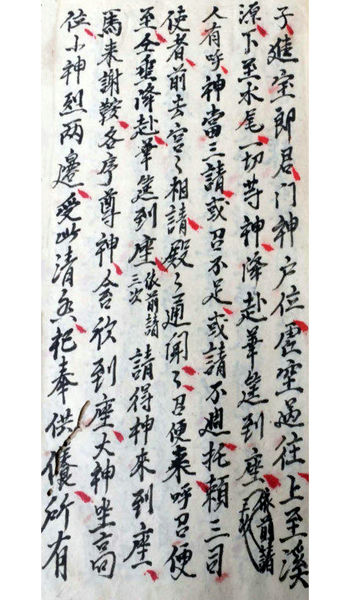 子進宝郎君门神户位虚空過往上至溪
源下至水尾一切等神降赴華筵到座依前請
人有呼神當三請或召不足或請不週托賴三司
使者前去宫〻相請殿〻通聞〻召便来呼召便
至全垂降赴華筵到座依前請三次請得神来到座
馬来謝鞍各序尊神合欣到座大神坐高
位小神烈两邊受此清〻祀奉供養所有